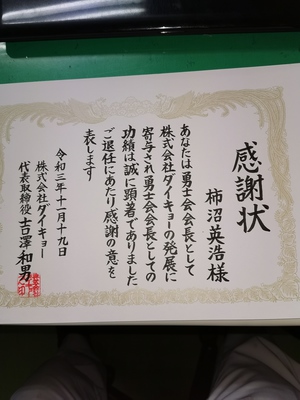 感謝状
柿沼英浩様
あなたは勇士会会長として
株式会社ダイキョーの発展に
寄与され勇士会会長としての
功績は誠に顕著でありました
ご退任にあたり感謝の意を
表します
令和三年十一月十九日
株式会社ダイキョー
代表取締役 吉澤和男